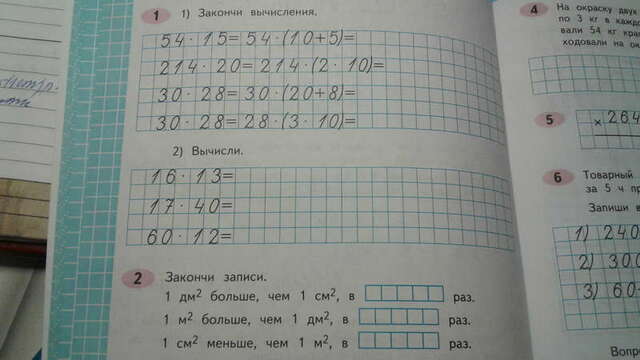 1 1) Закончи вычисления.
54·15=54·(10+5)=
214·20=214·(2·10)=
30·28=30·(20+8)=
30·28=28·(3·10)=
2) Вычисли.
16·13=
17·40=
60·12=
2 Закончи записи.
1 дм² больше, чем 1 см², в раз.
1 м² больше, чем 1 дм², в раз.
1 см² меньше, чем 1 м², в раз.
4 На окраску двух
по 3 кг в кажд
вали 54 кг крас
ходовали на ок
5 × 264
6 Товарный
за 5 ч пр
Запиши в
1) 240
2) 300
3) 60
Вопр